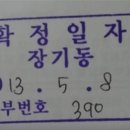 확정일자
장기동
013 . 5 . 8
부번호 390